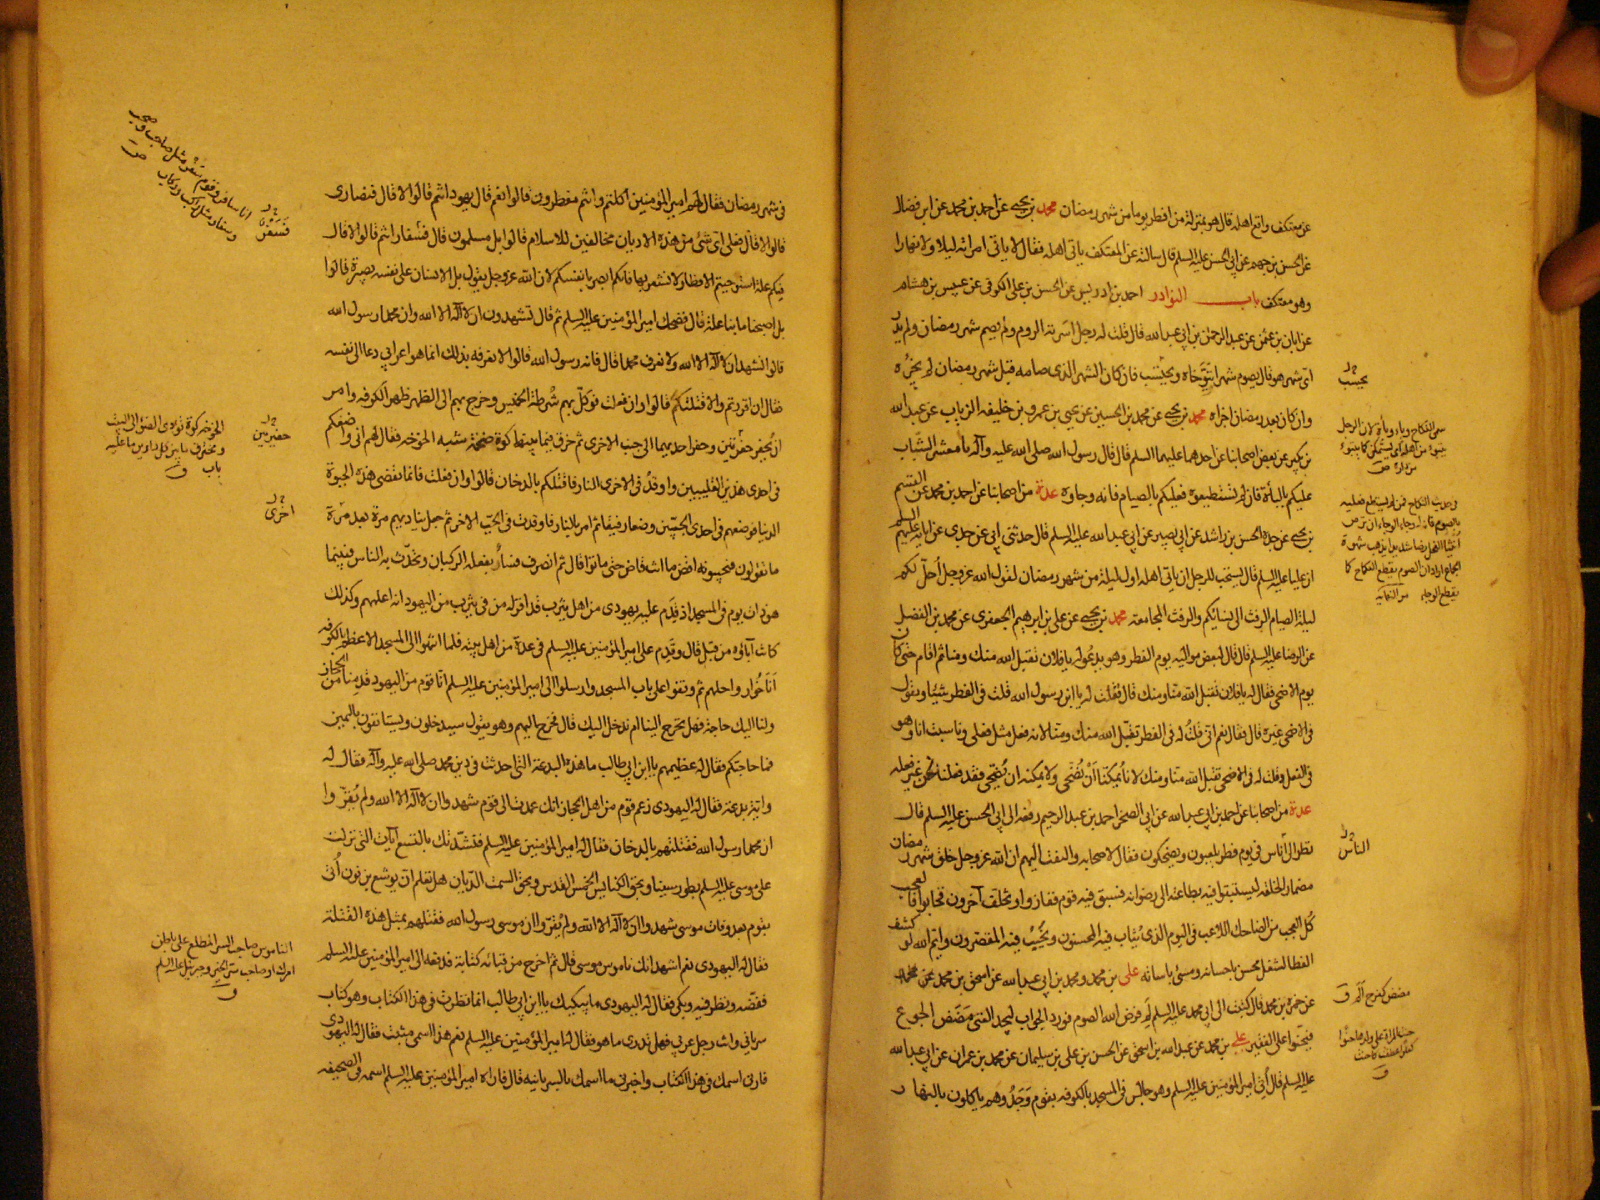 عن معتكف واقع اهله قال هو بمنزلة من افطر يوما من شهر رمضان محمد بن يحيى عن احمد بن محمد عن ابن فضال
عن الحسن بن جهم عن ابي الحسن عليه السلم قال سالته عن المعتكف ياتي اهله فقال لا ياتي امراته ليلا ولا نهارا
وهو معتكف باب النوادر احمد بن ادريس عن الحسن بن علي الكوفي عن عبيس بن هشام
عن ابان بن عثمن عن عبد الرحمن بن ابي عبد الله قال قلت له رجل اسرته الروم ولم يصم شهر رمضان ولم يدر
اي شهر هو قال يصوم شهرا يتوخاه ويحتسب فان كان الشهر الذي صامه قبل شهر رمضان لم يجزه
وان كان بعد رمضان اجزاه محمد بن يحيى عن محمد بن الحسين عن يحيى بن عمرو بن خليفه الزيات عن عبد الله
بن بكير عن بعض اصحابنا عن احدهما عليهما السلم قال قال رسول الله صلى الله عليه وآله يا معشر الشباب
عليكم بالباءة فان لم تستطيعوه فعليكم بالصيام فانه وجاوه عدة من اصحابنا عن احمد بن محمد عن القسم
بن يحيى عن جده الحسن بن راشد عن ابي بصير عن ابي عبد الله عليه السلم قال حدثني ابي عن جدي عن ابايه عليهم السلم
ان عليا عليه السلم قال يستحب للرجل ان ياتي اهله اول ليلة من شهر رمضان لقول الله عز وجل احل لكم
ليلة الصيام الرفث الى نسائكم والرفث المجامعة محمد بن يحيى عن علي بن ابرهيم الجعفري عن محمد بن الفضل
عن الرضا عليه السلم قال قال لبعض مواليه يوم الفطر وهو يدعو له يا فلان تقبل الله منك ومنا ثم اقام حتى كان
يوم الاضحى فقال له يا فلان تقبل الله منا ومنك قال فقلت له يا ابن رسول الله قلت في الفطر شيئا وتقول
في الاضحى غيره قال فقال نعم اني قلت له في الفطر تقبل الله منك ومنا لانه فعل مثل فعلي وتاسيت انا وهو
في الفعل وقلت له في الاضحى تقبل الله منا ومنك لانا يمكننا ان نضحي ولا يمكنه ان يضحي فقد فعلنا نحن غير فعله
عدة من اصحابنا عن احمد بن ابي عبد الله عن ابي الصخر احمد بن عبد الرحيم رفعه الى ابي الحسن عليه السلم قال
نظر الى الناس في يوم فطر يلعبون ويضحكون فقال لاصحابه والتفت اليهم ان الله عز وجل خلق شهر رمضان
مضمارا لخلقه ليستبقوا فيه بطاعته الى رضوانه فسبق فيه قوم ففازوا وتخلف آخرون فخابوا فالعجب
كل العجب من الضاحك اللاعب في اليوم الذي يثاب فيه المحسنون ويخيب فيه المقصرون وايم الله لو كشف
الغطا لشغل محسن باحسانه ومسئ باساته علي بن محمد ومحمد بن ابي عبد الله عن اسحق بن محمد
عن حمزه بن محمد قال كتبت الى ابي محمد عليه السلم لم فرض الله الصوم فورد الجواب ليجد الغني مضض الجوع
فيحنوا على الفقير علي بن محمد عن عبد الله بن اسحق عن الحسن بن علي بن سليمان عن محمد بن عمران عن ابي عبد الله
عليه السلم قال اتي امير المؤمنين عليه السلم وهو جالس في المسجد بالكوفه بقوم وجدوهم ياكلون بالنهار
يحتسب
الناس
مضض كفرح الم ق
في شهر رمضان فقال لهم امير المؤمنين اكلتم وانتم مفطرون قالوا نعم قال يهود انتم قالوا لا قال فنصارى
قالوا لا قال فعلى اي شئ من هذه الاديان مخالفين للاسلام قالوا بل مسلمون قال فسفار انتم قالوا لا قال
فيكم علة استوجبتم الافطار لا نشعر بها فانكم ابصر بانفسكم لان الله عز وجل يقول بل الانسان على نفسه بصيرة قالوا
بل اصبحنا ما بنا علة قال فضحك امير المؤمنين عليه السلم ثم قال تشهدون ان لا اله الا الله وان محمدا رسول الله
قالوا نشهد ان لا اله الا الله ولا نعرف محمدا قال فانه رسول الله قالوا لا نعرفه بذلك انما هو اعرابي دعا الى نفسه
فقال ان اقررتم والا قتلتكم قالوا وان فعلت فوكل بهم شرطة الخميس وخرج بهم الى الظهر ظهر الكوفه وامر
ان يحفر حفرتين وحفر احديهما الى جنب الاخرى ثم خرق فيما بينهما كوة ضخمة شبه الخوخه فقال لهم اني واضعكم
في احدى هذين القليبين واوقد في الاخرى النار فاقتلكم بالدخان قالوا وان فعلت فانما تقضي هذه الحيوة
الدنيا فوضعهم في احدى الجبين وضعا رفيقا ثم امر بالنار فاوقدت في الجب الاخر ثم جعل يناديهم مرة بعد مرة
ما تقولون فيجيبونه اقض ما انت قاض حتى ماتوا قال ثم انصرف فسار بفعله الركبان وتحدث به الناس فبينما
هو ذات يوم في المسجد اذ قدم عليه يهودي من اهل يثرب قد اقر له من في يثرب من اليهود انه اعلمهم وكذلك
كانت آباؤه من قبل قال وقدم على امير المؤمنين عليه السلم في عدة من اهل بيته فلما انتهوا الى المسجد الاعظم بالكوفه
اناخوا رواحلهم ثم وقفوا على باب المسجد وارسلوا الى امير المؤمنين عليه السلم انا قوم من اليهود قدمنا من الحجاز
ولنا اليك حاجة فهل تخرج الينا ام ندخل اليك قال فخرج اليهم وهو يقول سيدخلون ويستانفون باليمين
فما حاجتكم فقال له عظيمهم يا ابن ابي طالب ما هذه البدعة التي احدثت في دين محمد صلى الله عليه وآله فقال له
واية بدعة فقال له اليهودي زعم قوم من اهل الحجاز انك عمدت الى قوم شهدوا ان لا اله الا الله ولم يقروا
ان محمدا رسول الله فقتلتهم بالدخان فقال له امير المؤمنين عليه السلم فنشدتك بالتسع آيات التي نزلت
على موسى عليه السلم بطور سينا وبحق الكنايس الخمس القدس وبحق السمت الديان هل تعلم ان يوشع بن نون اتي
بقوم بعد وفات موسى شهدوا ان لا اله الا الله ولم يقروا ان موسى رسول الله فقتلهم بمثل هذه القتلة
فقال له اليهودي نعم اشهد انك ناموس موسى قال ثم اخرج من قبائه كتابا فدفعه الى امير المؤمنين عليه السلم
ففضه ونظر فيه وبكى فقال له اليهودي ما يبكيك يا ابن ابي طالب انما نظرت في هذا الكتاب وهو كتاب
سرياني وانت رجل عربي فهل تدري ما هو فقال له امير المؤمنين عليه السلم نعم هذا اسمي مثبت فقال له اليهودي
فارني اسمك في هذا الكتاب واخبرني ما اسمك بالسريانيه قال فاراه امير المؤمنين عليه السلم اسمه في الصحيفه
حفيرتين
اخرى
الناموس صاحب السر المطلع على باطن
امرك او صاحب سر الخير وجبرئيل عليه السلم
ق